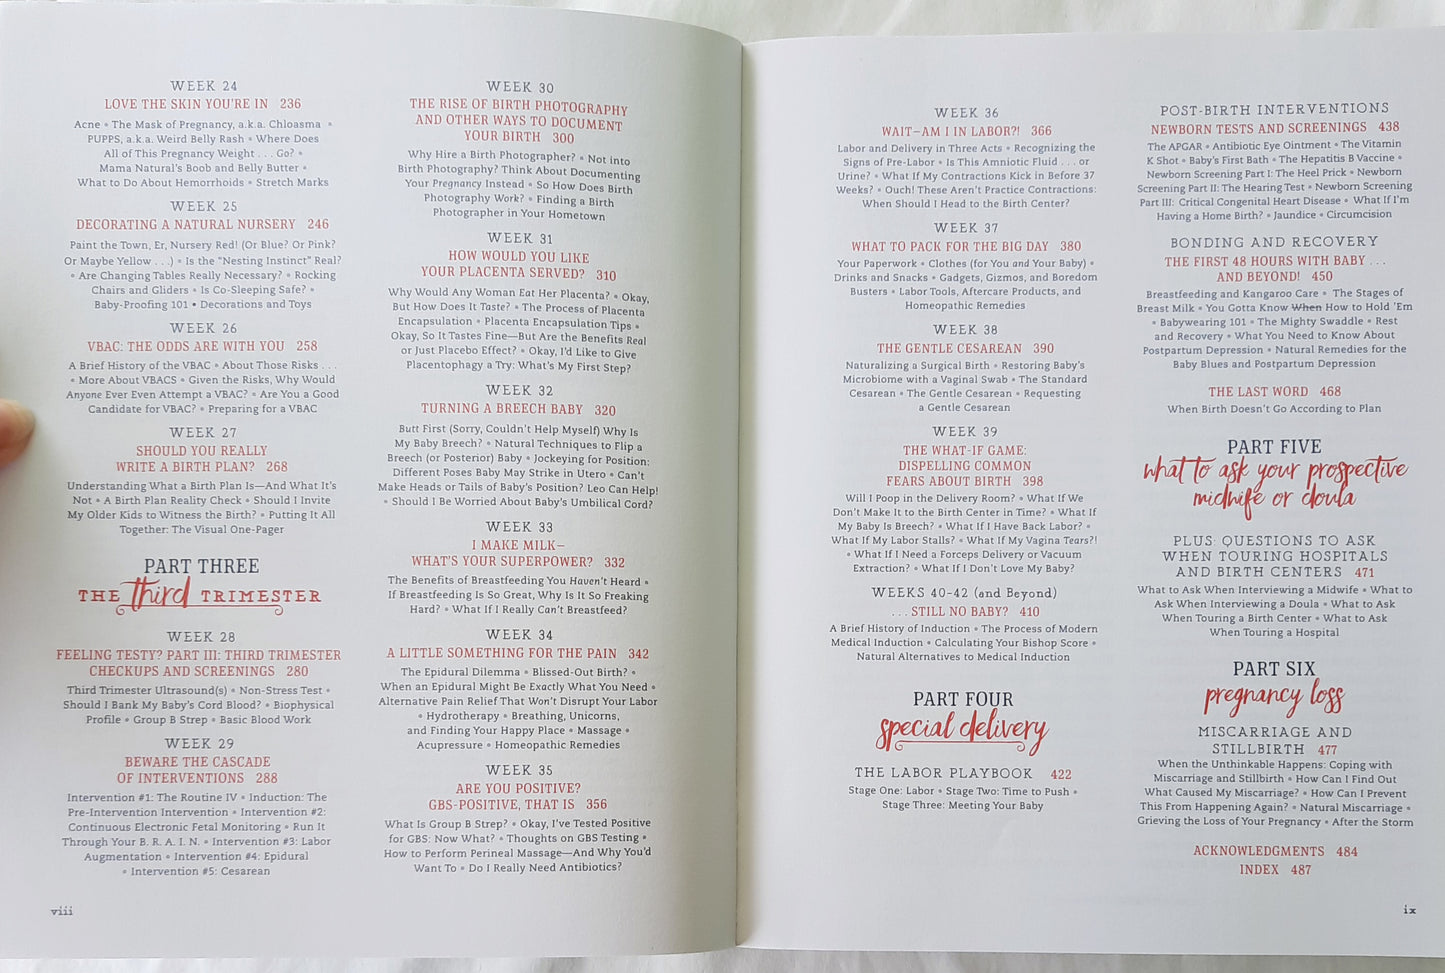 WEEK 24
LOVE THE SKIN YOU'RE IN 236
Acne • The Mask of Pregnancy, a.k.a. Chloasma •
PUPPS, a.k.a. Weird Belly Rash • Where Does
All of This Pregnancy Weight . . . Go? •
Mama Natural's Boob and Belly Butter •
What to Do About Hemorrhoids • Stretch Marks
WEEK 25
DECORATING A NATURAL NURSERY 246
Paint the Town, Er, Nursery Red! (Or Blue? Or Pink?
Or Maybe Yellow . . .) • Is the “Nesting Instinct” Real?
• Are Changing Tables Really Necessary? • Rocking
Chairs and Gliders • Is Co-Sleeping Safe? •
Baby-Proofing 101 • Decorations and Toys
WEEK 26
VBAC: THE ODDS ARE WITH YOU 258
A Brief History of the VBAC • About Those Risks . . .
• More About VBACS • Given the Risks, Why Would
Anyone Ever Even Attempt a VBAC? • Are You a Good
Candidate for VBAC? • Preparing for a VBAC
WEEK 27
SHOULD YOU REALLY
WRITE A BIRTH PLAN? 268
Understanding What a Birth Plan Is—And What It's
Not • A Birth Plan Reality Check • Should I Invite
My Older Kids to Witness the Birth? • Putting It All
Together: The Visual One-Pager
PART THREE
THE third TRIMESTER
WEEK 28
FEELING TESTY? PART III: THIRD TRIMESTER
CHECKUPS AND SCREENINGS 280
Third Trimester Ultrasound(s) • Non-Stress Test •
Should I Bank My Baby's Cord Blood? • Biophysical
Profile • Group B Strep • Basic Blood Work
WEEK 29
BEWARE THE CASCADE
OF INTERVENTIONS 288
Intervention #1: The Routine IV • Induction: The
Pre-Intervention Intervention • Intervention #2:
Continuous Electronic Fetal Monitoring • Run It
Through Your B. R. A. I. N. • Intervention #3: Labor
Augmentation • Intervention #4: Epidural
• Intervention #5: Cesarean
viii
WEEK 30
THE RISE OF BIRTH PHOTOGRAPHY
AND OTHER WAYS TO DOCUMENT
YOUR BIRTH 300
Why Hire a Birth Photographer? • Not into
Birth Photography? Think About Documenting
Your Pregnancy Instead • So How Does Birth
Photography Work? • Finding a Birth
Photographer in Your Hometown
WEEK 31
HOW WOULD YOU LIKE
YOUR PLACENTA SERVED? 310
Why Would Any Woman Eat Her Placenta? • Okay,
But How Does It Taste? • The Process of Placenta
Encapsulation • Placenta Encapsulation Tips •
Okay, So It Tastes Fine—But Are the Benefits Real
or Just Placebo Effect? • Okay, I'd Like to Give
Placentophagy a Try: What's My First Step?
WEEK 32
TURNING A BREECH BABY 320
Butt First (Sorry, Couldn't Help Myself) Why Is
My Baby Breech? • Natural Techniques to Flip a
Breech (or Posterior) Baby • Jockeying for Position:
Different Poses Baby May Strike in Utero • Can't
Make Heads or Tails of Baby's Position? Leo Can Help!
• Should I Be Worried About Baby's Umbilical Cord?
WEEK 33
I MAKE MILK—
WHAT'S YOUR SUPERPOWER? 332
The Benefits of Breastfeeding You Haven't Heard •
If Breastfeeding Is So Great, Why Is It So Freaking
Hard? • What If I Really Can't Breastfeed?
WEEK 34
A LITTLE SOMETHING FOR THE PAIN 342
The Epidural Dilemma • Blissed-Out Birth? •
When an Epidural Might Be Exactly What You Need •
Alternative Pain Relief That Won't Disrupt Your Labor
• Hydrotherapy • Breathing, Unicorns,
and Finding Your Happy Place • Massage •
Acupressure • Homeopathic Remedies
WEEK 35
ARE YOU POSITIVE?
GBS-POSITIVE, THAT IS 356
What Is Group B Strep? • Okay, I've Tested Positive
for GBS: Now What? • Thoughts on GBS Testing •
How to Perform Perineal Massage—And Why You'd
Want To • Do I Really Need Antibiotics?
WEEK 36
WAIT—AM I IN LABOR?! 366
Labor and Delivery in Three Acts • Recognizing the
Signs of Pre-Labor • Is This Amniotic Fluid . . . or
Urine? • What If My Contractions Kick in Before 37
Weeks? • Ouch! These Aren't Practice Contractions:
When Should I Head to the Birth Center?
WEEK 37
WHAT TO PACK FOR THE BIG DAY 380
Your Paperwork • Clothes (for You and Your Baby) •
Drinks and Snacks • Gadgets, Gizmos, and Boredom
Busters • Labor Tools, Aftercare Products, and
Homeopathic Remedies
WEEK 38
THE GENTLE CESAREAN 390
Naturalizing a Surgical Birth • Restoring Baby's
Microbiome with a Vaginal Swab • The Standard
Cesarean • The Gentle Cesarean • Requesting
a Gentle Cesarean
WEEK 39
THE WHAT-IF GAME:
DISPELLING COMMON
FEARS ABOUT BIRTH 398
Will I Poop in the Delivery Room? • What If We
Don't Make It to the Birth Center in Time? • What If
My Baby Is Breech? • What If I Have Back Labor? •
What If My Labor Stalls? • What If My Vagina Tears?!
• What If I Need a Forceps Delivery or Vacuum
Extraction? • What If I Don't Love My Baby?
WEEKS 40–42 (and Beyond)
. . . STILL NO BABY? 410
A Brief History of Induction • The Process of Modern
Medical Induction • Calculating Your Bishop Score •
Natural Alternatives to Medical Induction
PART FOUR
special delivery
THE LABOR PLAYBOOK 422
Stage One: Labor • Stage Two: Time to Push •
Stage Three: Meeting Your Baby
POST-BIRTH INTERVENTIONS
NEWBORN TESTS AND SCREENINGS 438
The APGAR • Antibiotic Eye Ointment • The Vitamin
K Shot • Baby's First Bath • The Hepatitis B Vaccine •
Newborn Screening Part I: The Heel Prick • Newborn
Screening Part II: The Hearing Test • Newborn Screening
Part III: Critical Congenital Heart Disease • What If I'm
Having a Home Birth? • Jaundice • Circumcision
BONDING AND RECOVERY
THE FIRST 48 HOURS WITH BABY . . .
AND BEYOND! 450
Breastfeeding and Kangaroo Care • The Stages of
Breast Milk • You Gotta Know When How to Hold 'Em
• Babywearing 101 • The Mighty Swaddle • Rest
and Recovery • What You Need to Know About
Postpartum Depression • Natural Remedies for the
Baby Blues and Postpartum Depression
THE LAST WORD 468
When Birth Doesn't Go According to Plan
PART FIVE
what to ask your prospective
midwife or doula
PLUS: QUESTIONS TO ASK
WHEN TOURING HOSPITALS
AND BIRTH CENTERS 471
What to Ask When Interviewing a Midwife • What to
Ask When Interviewing a Doula • What to Ask
When Touring a Birth Center • What to Ask
When Touring a Hospital
PART SIX
pregnancy loss
MISCARRIAGE AND
STILLBIRTH 477
When the Unthinkable Happens: Coping with
Miscarriage and Stillbirth • How Can I Find Out
What Caused My Miscarriage? • How Can I Prevent
This From Happening Again? • Natural Miscarriage •
Grieving the Loss of Your Pregnancy • After the Storm
ACKNOWLEDGMENTS 484
INDEX 487
ix